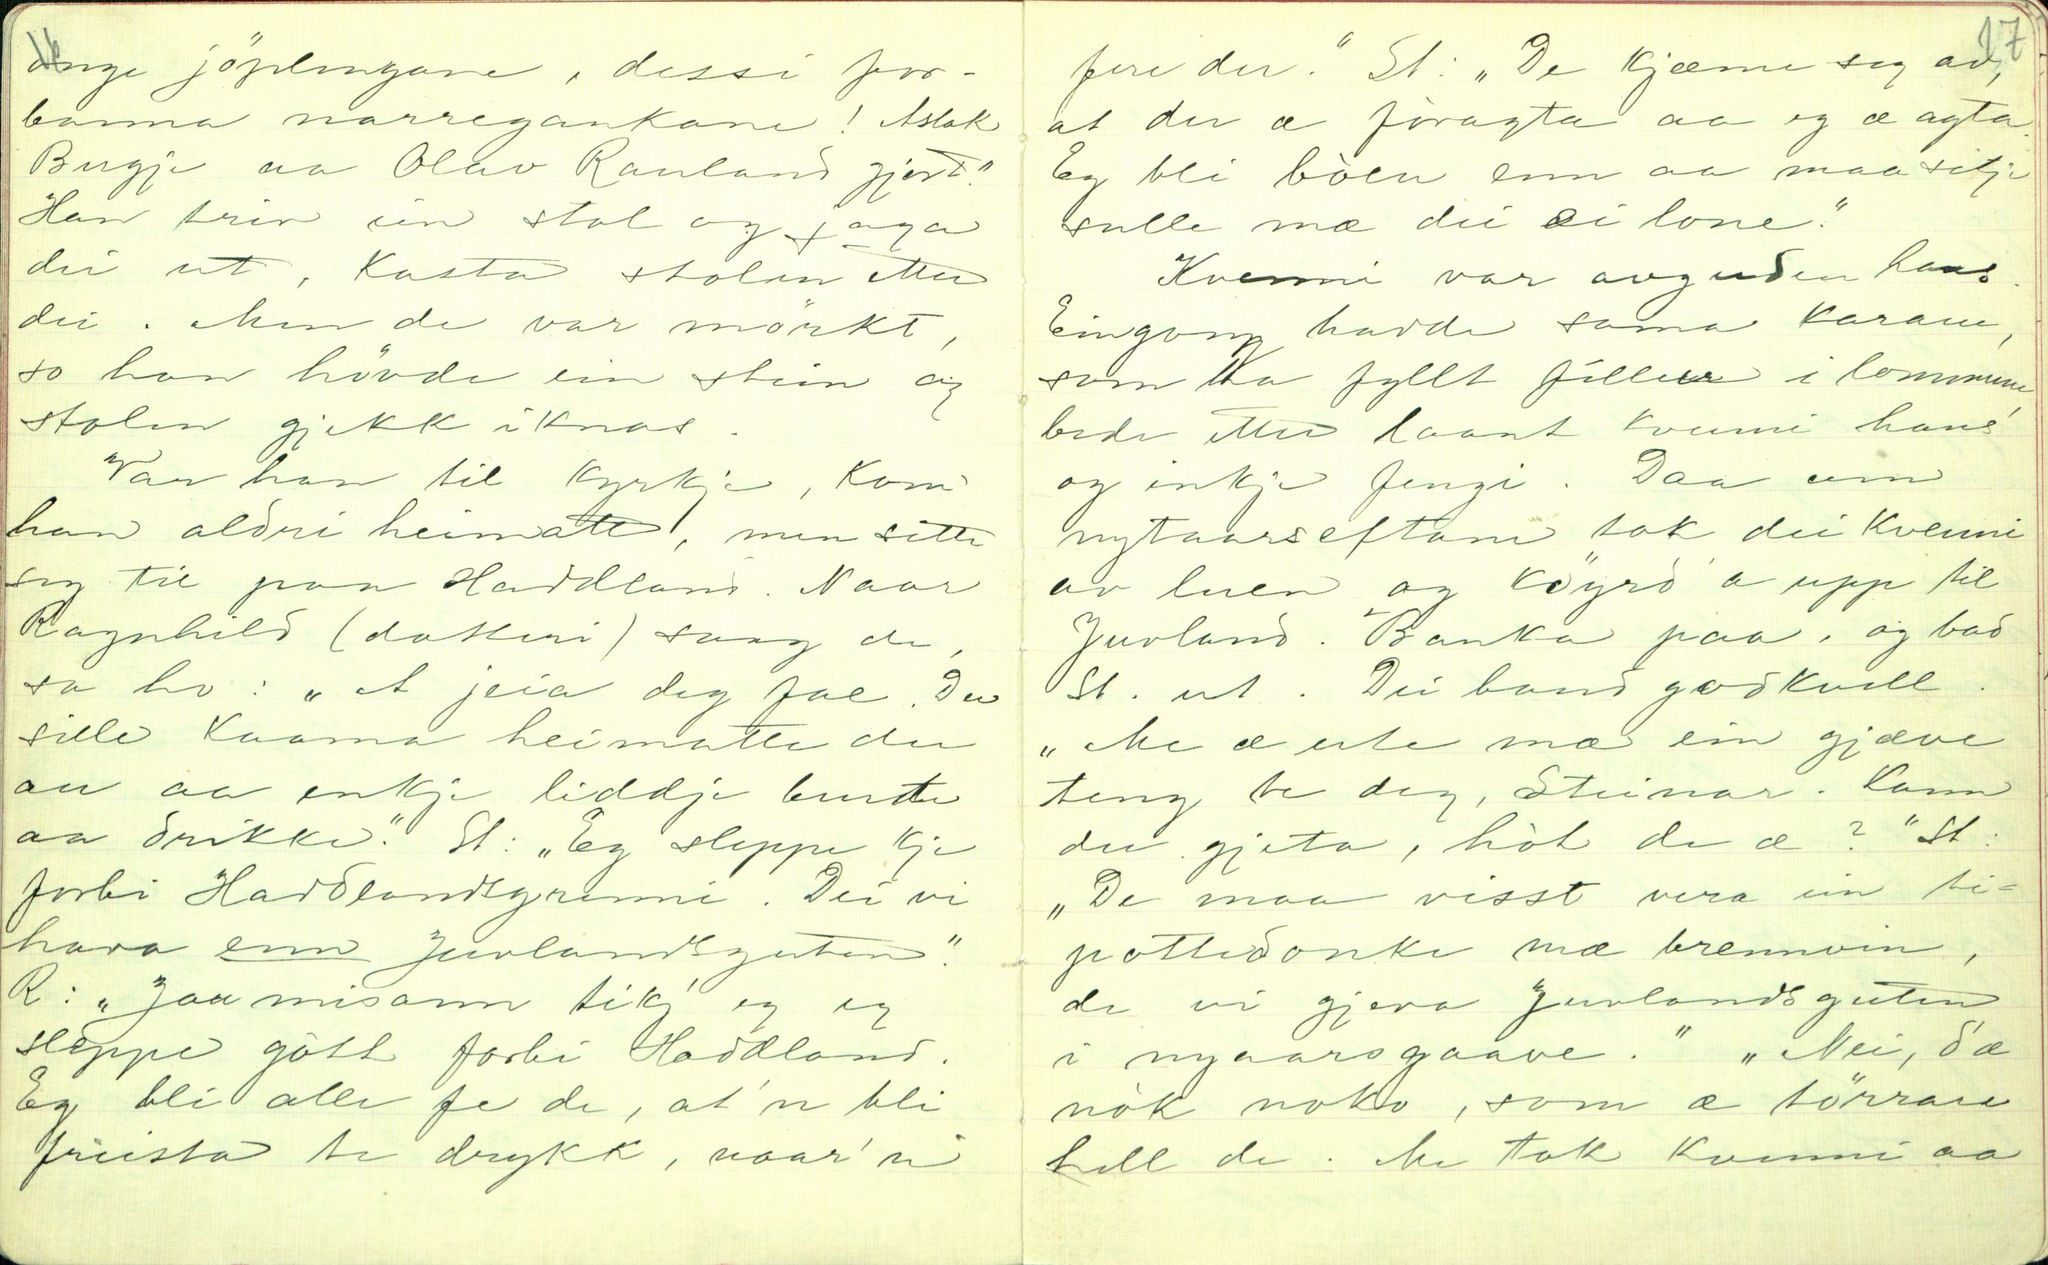 unge jöplengane, dessi for-
banna narregaukane! Aslak
Bugje aa Olav Rauland gjort."
Han treiv ein stol og jaga
dei ut, kasta stolen etter
dei. Men de var mörkt,
so han hövde ein stein og
stolen gjekk i knas.
Var han til kyrkje, kom
han aldri heimatt, men sette
seg til paa Haddland. Naar
Ragnhild (dotteri) saag de,
sa ho: „At jeia deg fae. Du
sille kaama heimatte du
au aa enkje liddje burte
aa drikke." St: „Eg sleppe kje
forbi Haddlandsgrenni. Dei vi
hava enn Juvlandsguten."
R: „Jaa misann tikj eg eg
sleppe gòtt forbi Haddland.
Eg bli alle fe de, at'n bli
freista te drykk, naar'n
17
fere der." St: „De kjæme seg av,
at du æ fòragta aa eg æ agta.
Eg bli bòen enn aa maa sitje
sulle mæ dei ei lone."
Kvenni var avguden hans.
Eingong havde sama karane,
som ha fyllt filler i lommune
bede etter laant kvenni hans
og inkje fengi. Daa um
nytaarseftane tok dei kvenni
av luen og köyrd'a upp til
Juvland. Banka paa, og bad
St. ut. Dei baud godkvell.
„Me æ ute mæ ein gjæve
teng te deg, Steinar. Kann
du gjeta, hòt de æ?" St:
„De maa visst vera ein ti-
pottedonke mæ brennvin,
de vi gjeva Juvlandsguten
i nyaarsgaave." „Nei, d'æ
nòk noko, som æ törrare
hell de. Me tok kvenni aa